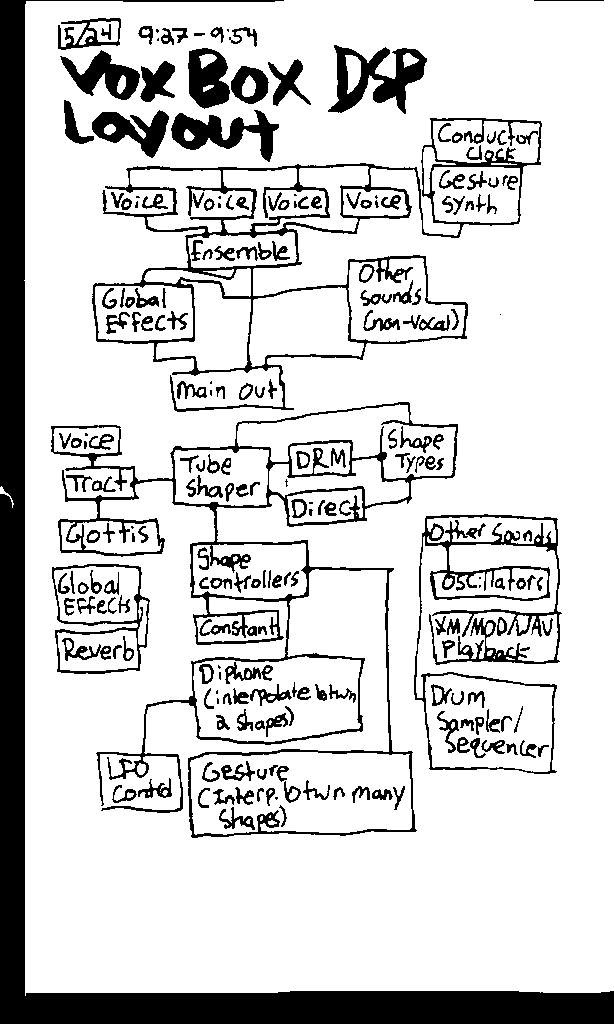 5/24 9:27-9:54
VoxBox DSP
Layout
Conductor
Clock
Gesture
Synth
Voice Voice Voice Voice
Ensemble
Global
Effects
Other
sounds
(non-vocal)
Main Out
Voice
Tract
Glottis
Tube
Shaper
DRM
Direct
Shape
Types
Global
Effects
Reverb
Shape
controllers
Constant
Diphone
(interpolate btwn
2 shapes)
LFO
Control
Gesture
(Interp. btwn many
shapes)
Other Sounds
Oscillators
XM/MOD/WAV
Playback
Drum
Sampler/
Sequencer